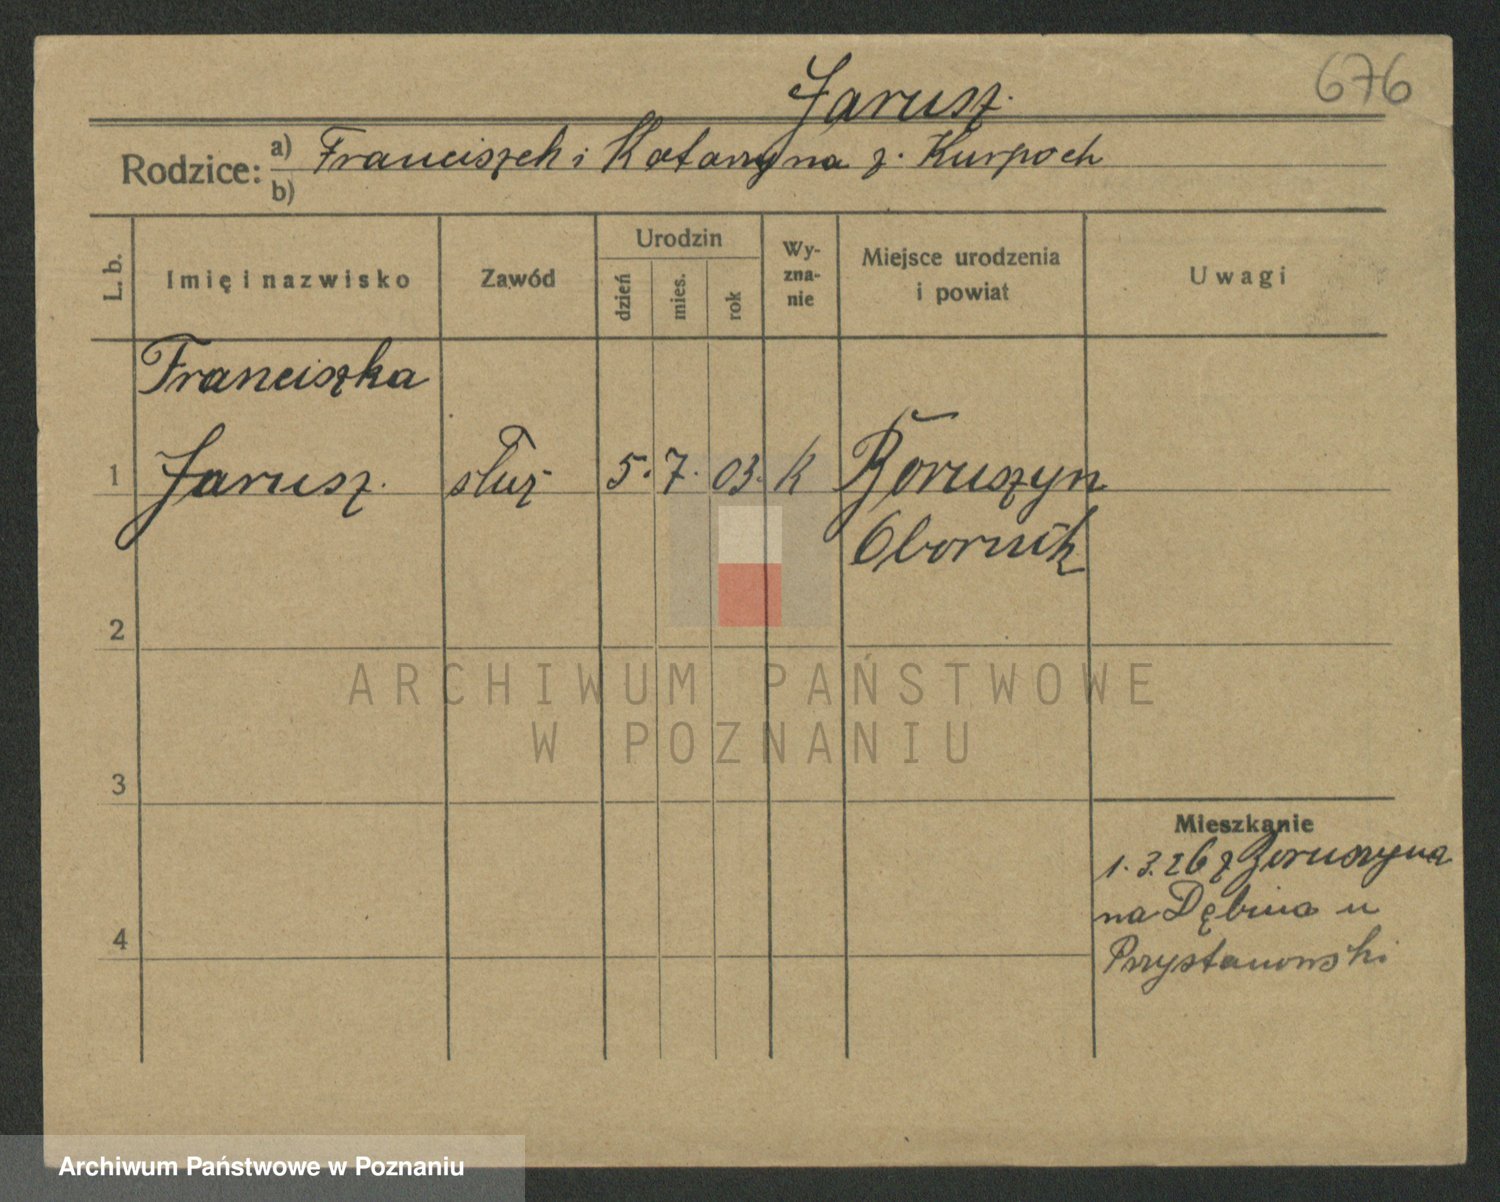 676
Jarusz.
Rodzice: a) Franciszek i Katarzyna z. Kurpoch
b)
L. b. Imię i nazwisko Zawód Urodzin dzień mies. rok Wy- zna- nie Miejsce urodzenia i powiat Uwagi
Franciszka
1 Jarusz. służ 5. 7. 03. K Boruszyn
Obornik
2
ARCHIWUM PAŃSTWOWE
W POZNANIU
3
Mieszkanie
1. 3. 26 z Boruszyna
na Dębina u
4 Przystanowski
Archiwum Państwowe w Poznaniu